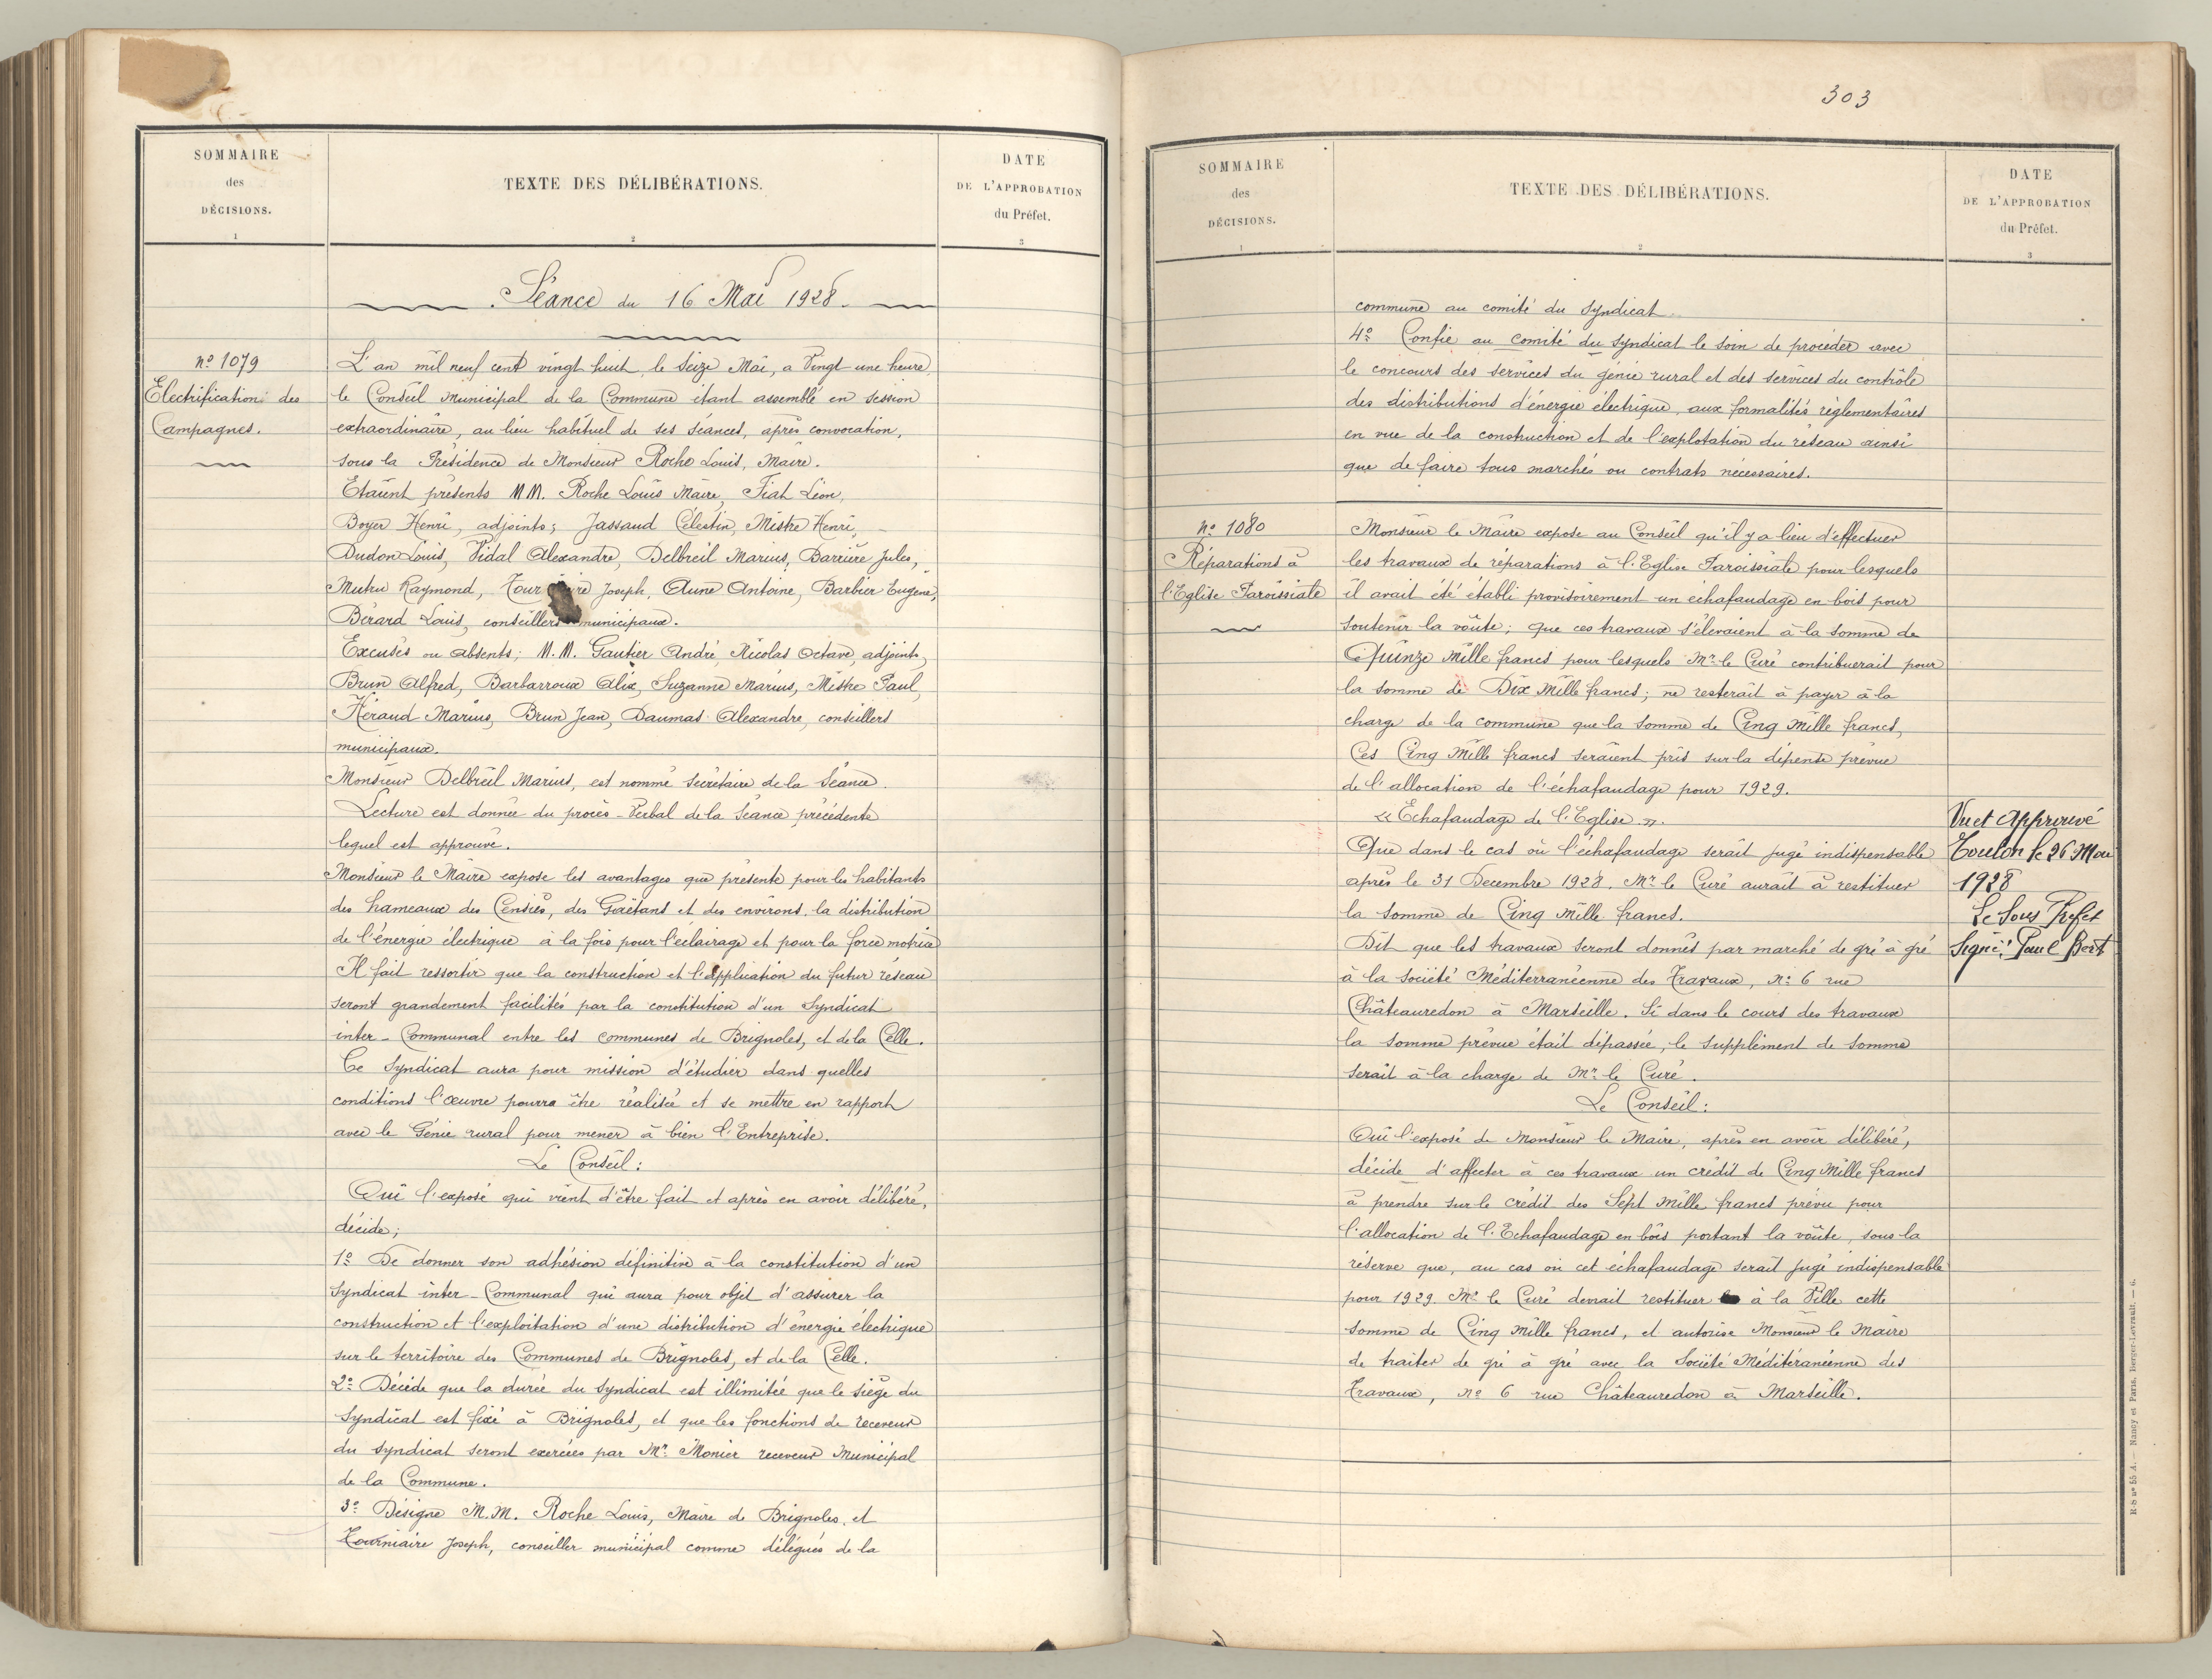 SOMMAIRE
des
DÉCISIONS.
1
TEXTE DES DÉLIBÉRATIONS.
2
DATE
DE L'APPROBATION
du Préfet.
3
Séance du 16 Mai 1928.
nº 1079
Electrification des
Campagnes.
L'an mil neuf cent vingt huit, le Seize Mai, a Vingt une heure,
le Conseil Municipal de la Commune étant assemblé en session
extraordinaire, au lieu habituel de ses séances, après convocation,
sous la Présidence de Monsieur Roche Louis, Maire.
Etaient présents MM. Roche Louis Maire, Fiat Léon,
Boyer Henri, adjoints; Jassaud Célestin, Mistre Henri,
Dudon Louis, Vidal Alexandre, Delbreil Marius, Barrière Jules,
Mutru Raymond, Tour re Joseph, Aune Antoine, Barbier Eugène,
Bérard Louis, conseillers municipaux.
Excusés ou absents; M.M. Gautier André, Nicolas Octave, adjoints,
Brun Alfred, Barbarroux Alix, Suzanne Marius, Mistre Paul,
Héraud Marius, Brun Jean, Daumas Alexandre, conseillers
municipaux.
Monsieur Delbreil Marius, est nommé secrétaire de la Séance.
Lecture est donnée du procès-Verbal de la Séance précédente
lequel est approuvé.
Monsieur le Maire expose les avantages que présente pour les habitants
des hameaux des Censiès, des Gaëtans et des environs, la distribution
de l'énergie électrique à la fois pour l'eclairage et pour la force motrice
Il fait ressortir que la construction et l'application du futur réseau
seront grandement facilités par la constitution d'un Syndicat
inter-Communal entre les communes de Brignoles, et de la Celle.
Ce Syndicat aura pour mission d'étudier dans quelles
conditions l'œuvre pourra être réalisée et se mettre en rapport
avec le Génie rural pour mener à bien l'Entreprise.
Le Conseil:
Ouï l'exposé qui vient d'être fait et après en avoir délibéré,
décide;
1º De donner son adhésion définitive à la constitution d'un
Syndicat inter-Communal qui aura pour objet d'assurer la
construction et l'exploitation d'une distribution d'énergie électrique
sur le territoire des Communes de Brignoles, et de la Celle.
2º Décide que la durée du Syndicat est illimitée que le siège du
Syndicat est fixé à Brignoles, et que les fonctions de receveur
du Syndicat seront exercées par Mr. Monier receveur Municipal
de la Commune.
3º Désigne M.M. Roche Louis, Maire de Brignoles, et
Tourniaire Joseph, conseiller municipal comme délégués de la
303
SOMMAIRE
des
DÉCISIONS.
1
TEXTE DES DÉLIBÉRATIONS.
2
DATE
DE L'APPROBATION
du Préfet.
3
commune au comité du Syndicat
4º Confie au comité du Syndicat le soin de procéder avec
le concours des services du génie rural et des services du contrôle
des distributions d'énergie électrique, aux formalités règlementaires
en vue de la construction et de l'explotation du réseau ainsi
que de faire tous marchés ou contrats nécessaires.
nº 1080
Réparations à
l'Eglise Paroissiale
Monsieur le Maire expose au Conseil qu'il y a lieu d'effectuer
les travaux de réparations à l'Eglise Paroissiale pour lesquels
il avait été établi provisoirement un échafaudage en bois pour
soutenir la voûte; Que ces travaux s'élevaient à la somme de
Quinze Mille francs pour lesquels Mr le Curé contribuerait pour
la somme de Dix Mille francs; ne resterait à payer à la
charge de la commune que la somme de Cinq Mille francs,
Ces Cinq Mille francs seraient pris sur la dépense prévue
de l'allocation de l'échafaudage pour 1929.
« Echafaudage de l'Eglise ».
Que dans le cas où l'échafaudage serait jugé indispensable
après le 31 Decembre 1928. Mr le Curé aurait à restituer
la somme de Cinq Mille francs.
Dit que les travaux seront donnés par marché de gré à gré
à la Société Méditerranéenne des Travaux, nº 6 rue
Châteauredon à Marseille. Si dans le cours des travaux
la somme prévue était dépassée, le supplément de somme
serait à la charge de Mr le Curé.
Le Conseil:
Ouï l'exposé de Monsieur le Maire, après en avoir délibéré,
décide d'affecter à ces travaux un crédit de Cinq Mille francs
à prendre sur le crédit des Sept Mille francs prévu pour
l'allocation de l'Echafaudage en bois portant la voûte, sous la
réserve que, au cas où cet échafaudage serait jugé indispensable
pour 1929. Mr le Curé devrait restituer à la Ville cette
somme de Cinq Mille francs, et autorise Monsieur le Maire
de traiter de gré à gré avec la Société Méditéranéenne des
Travaux, nº 6 rue Châteauredon à Marseille.
Vu et Approuvé
Toulon le 26 Mai
1928
Le Sous Préfet
Signé: Paul Bert
R-S nº 55 A. — Nancy et Paris, Berger-Levrault. — 6.